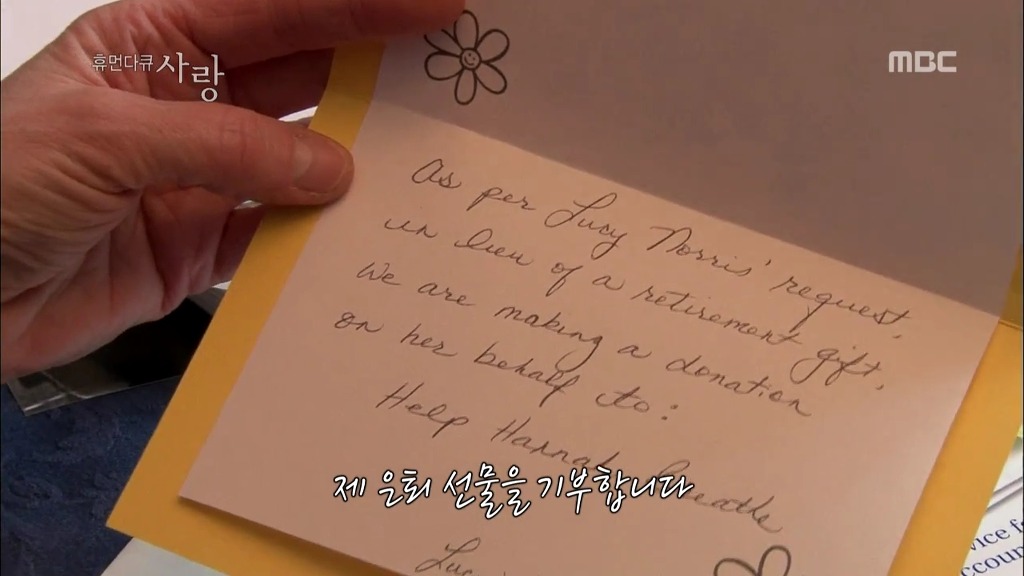 휴먼다큐 사랑
MBC
As per Lucy Norris' request,
in lieu of a retirement gift,
We are making a donation
on her behalf to:
Help Hannah Breathe
제 은퇴 선물을 기부합니다